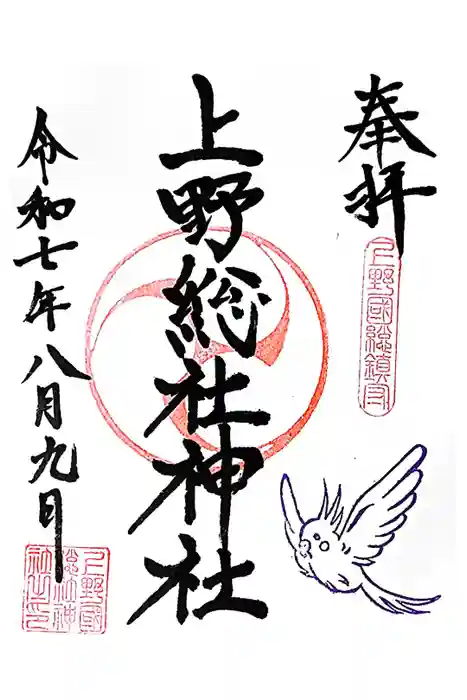 奉拝
上野國総鎮守
上野総社神社
令和七年八月九日
上野國
総社神
社之印